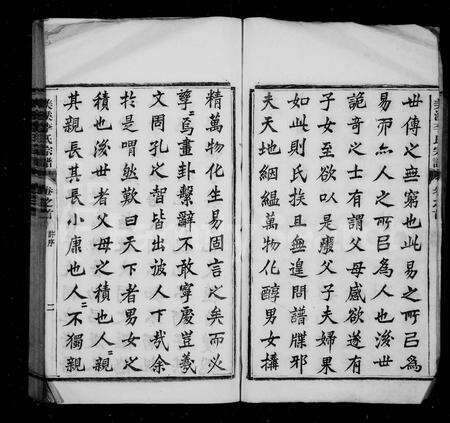 世傳之無窮也此易之所㠯為
易而人之所㠯為人也後世
詭奇之士有謂父母感欲遂有
子女欲以是廢父子夫婦果
如此則氏族且無遑問譜牒邪
夫天地絪縕萬物化醇男女構
精萬物化生易固言之矣而必
孽焉畫卦繫辭不敢寧處豈羲
文周孔之智皆出彼人下哉余
於是喟然歎曰天下者男女之
積也後世者父母之積也人親
其親長其長小康也人不獨親
卷之首
許序
二